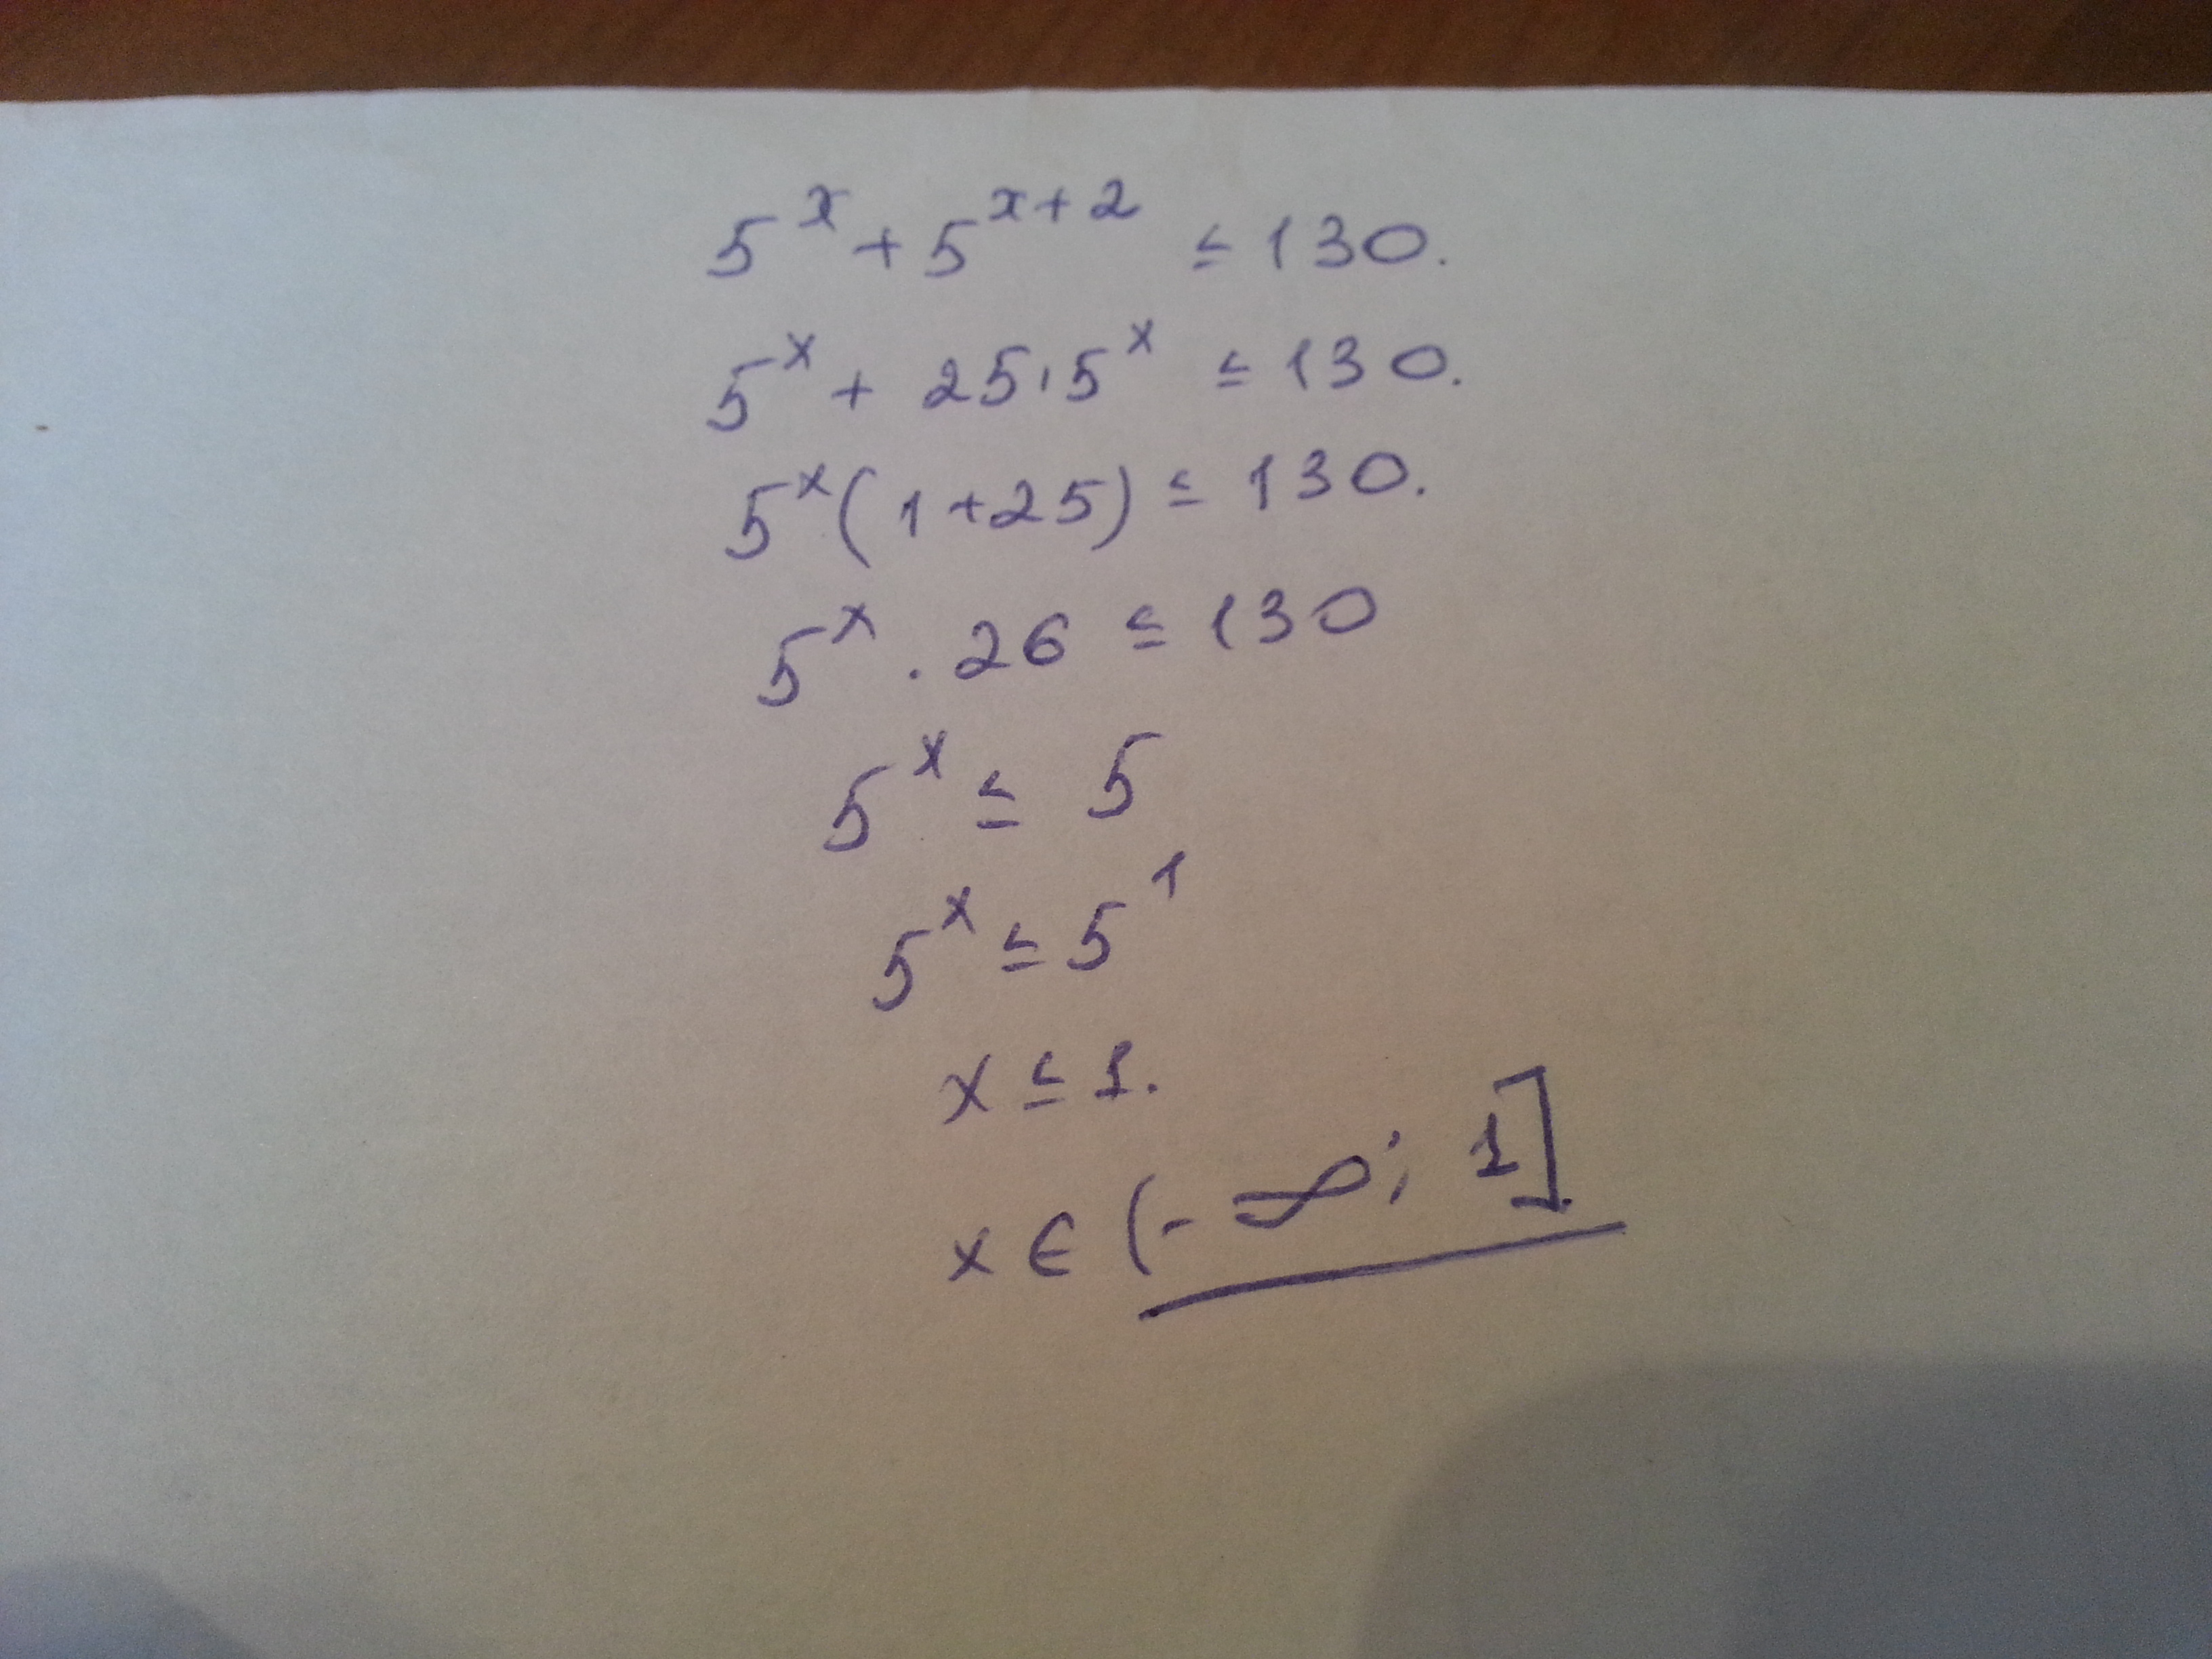 5^x + 5^{x+2} ≤ 130.
5^x + 25·5^x ≤ 130.
5^x (1+25) ≤ 130.
5^x · 26 ≤ 130
5^x ≤ 5
5^x ≤ 5^1
x ≤ 1.
x ∈ (-∞; 1]